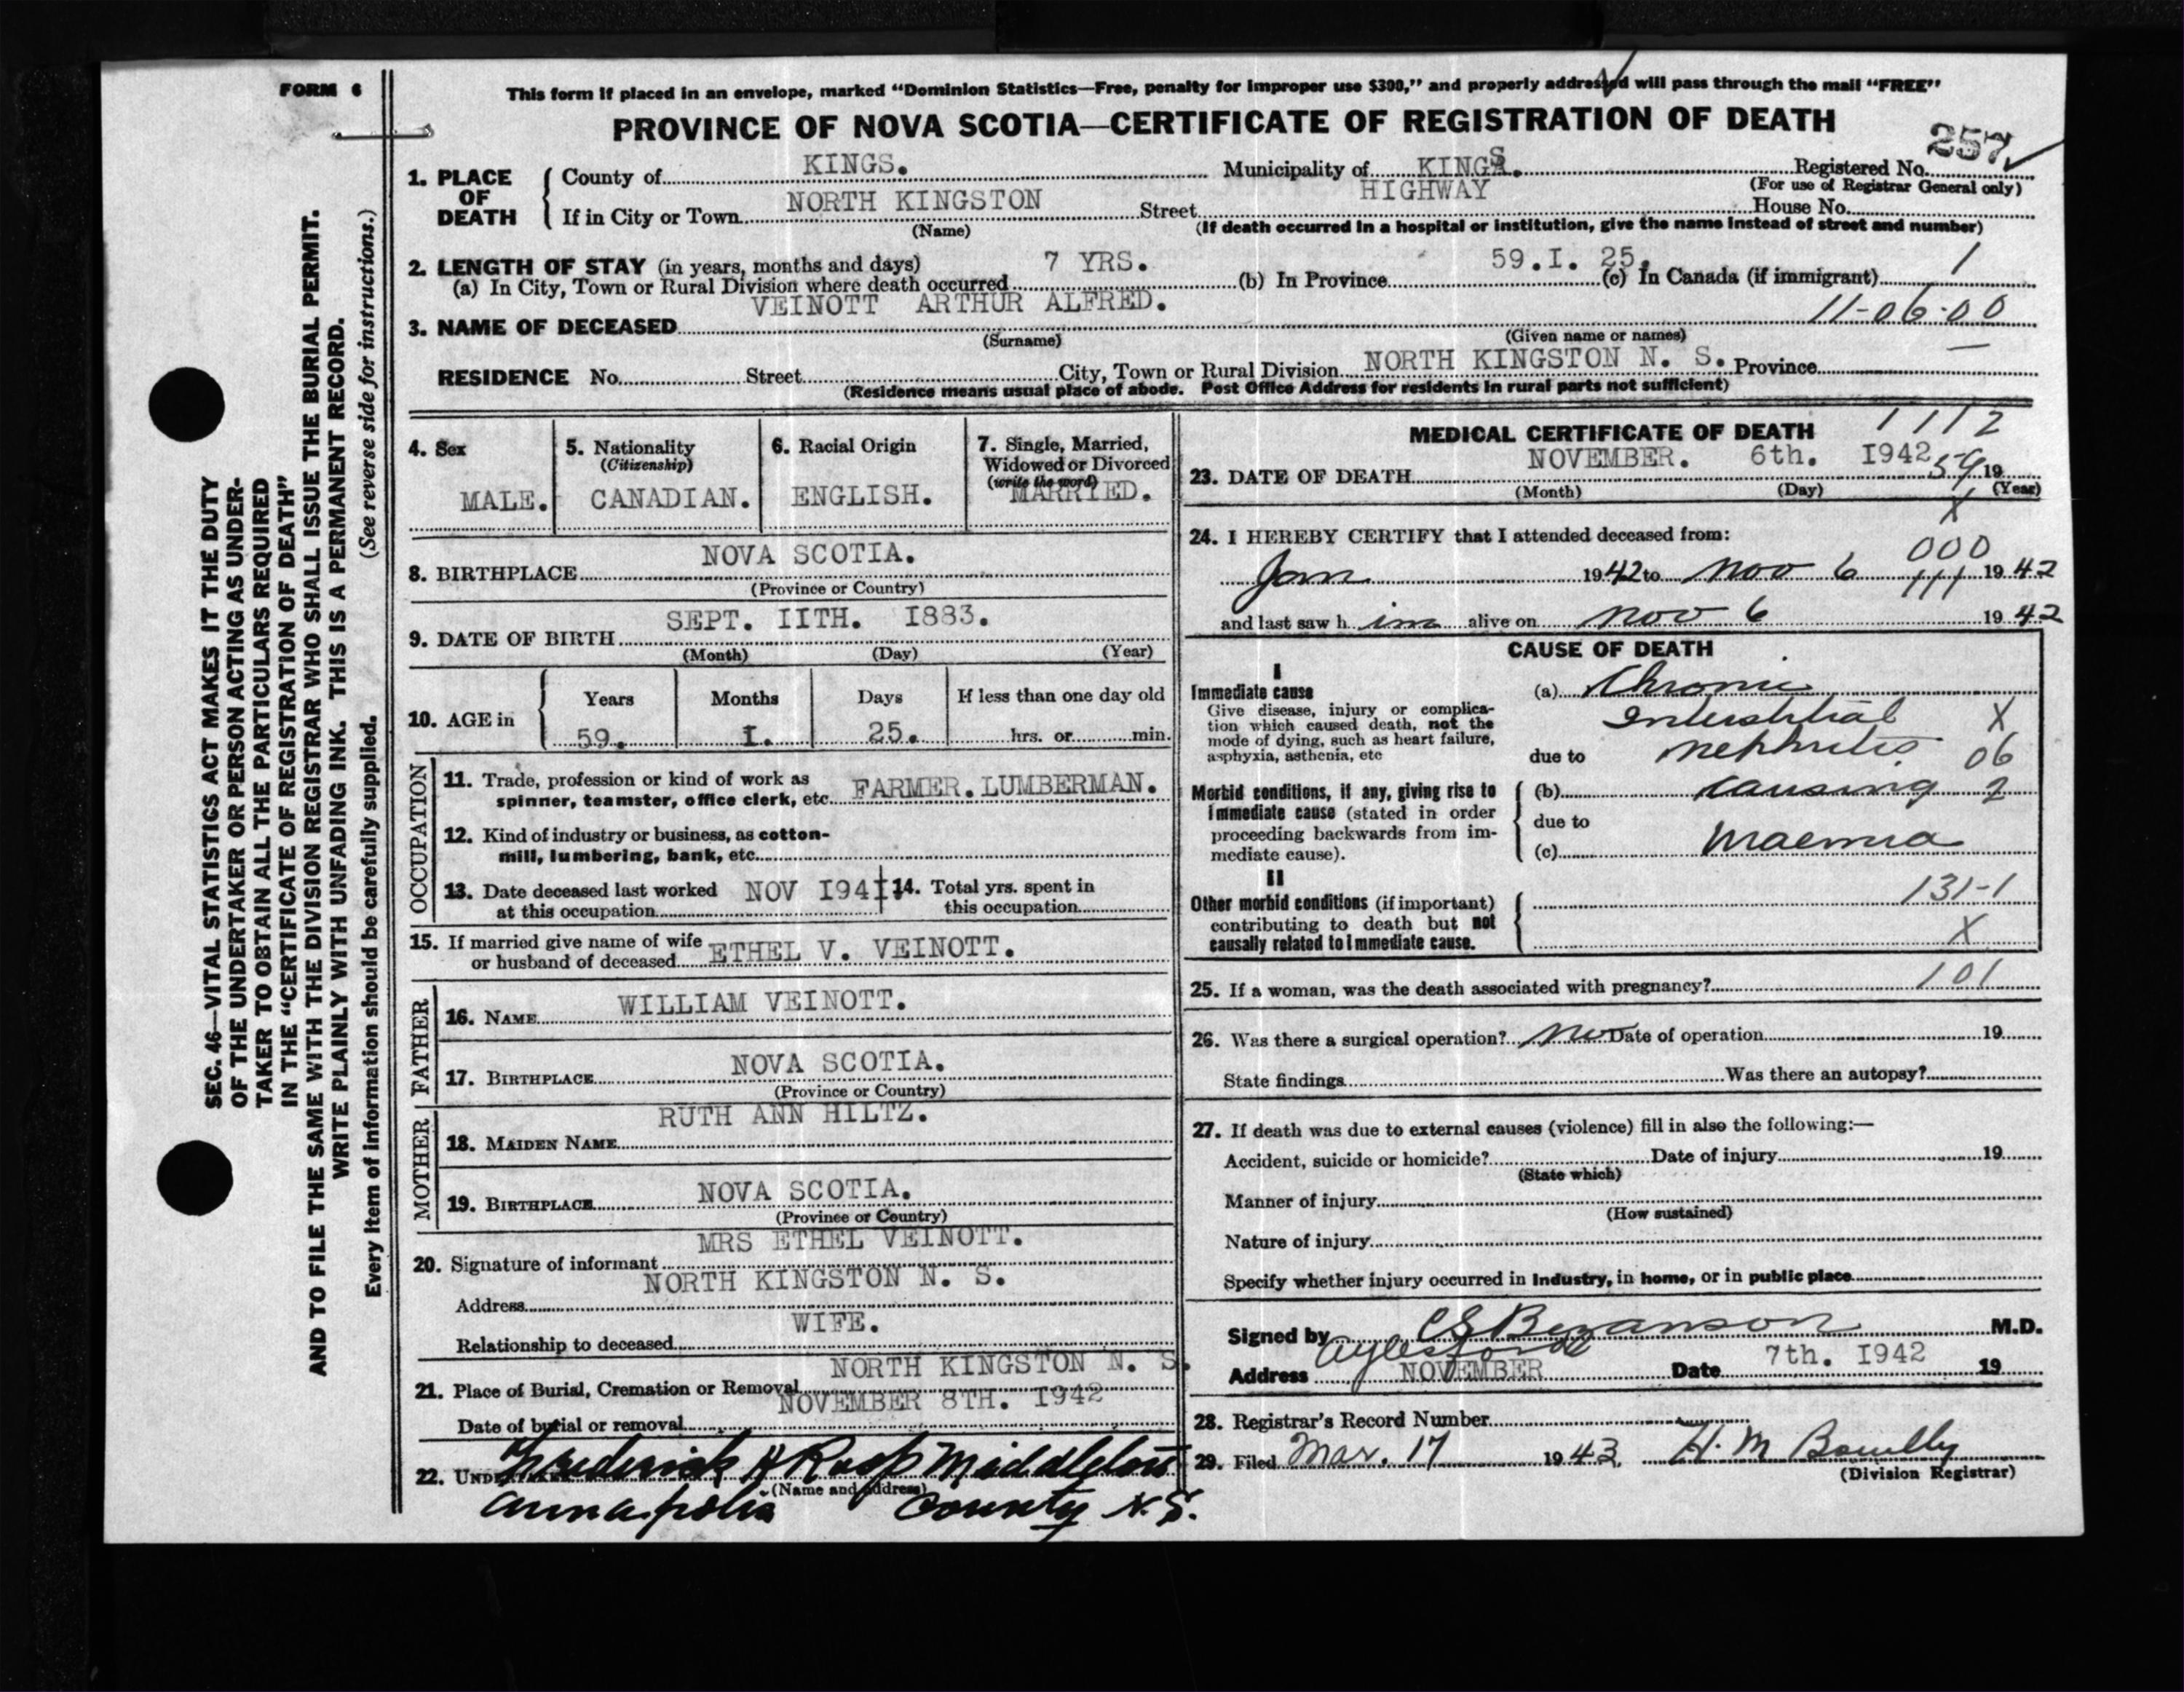 FORM 6
This form if placed in an envelope, marked "Dominion Statistics—Free, penalty for improper use $300," and properly addressed will pass through the mail "FREE"
PROVINCE OF NOVA SCOTIA—CERTIFICATE OF REGISTRATION OF DEATH
257
1. PLACE OF DEATH
County of KINGS. Municipality of KINGS. Registered No.
(For use of Registrar General only)
If in City or Town NORTH KINGSTON Street HIGHWAY House No.
(Name) (If death occurred in a hospital or institution, give the name instead of street and number)
2. LENGTH OF STAY (in years, months and days)
(a) In City, Town or Rural Division where death occurred 7 YRS. (b) In Province 59.I. 25. (c) In Canada (if immigrant) 1
3. NAME OF DECEASED VEINOTT ARTHUR ALFRED. 11-06-00
(Surname) (Given name or names)
RESIDENCE No. Street City, Town or Rural Division NORTH KINGSTON N. S. Province —
(Residence means usual place of abode. Post Office Address for residents in rural parts not sufficient)
4. Sex
MALE.
5. Nationality
(Citizenship)
CANADIAN.
6. Racial Origin
ENGLISH.
7. Single, Married,
Widowed or Divorced
(write the word)
MARRIED.
8. BIRTHPLACE NOVA SCOTIA.
(Province or Country)
9. DATE OF BIRTH SEPT. IITH. I883.
(Month) (Day) (Year)
10. AGE in
Years Months Days If less than one day old
59. I. 25. hrs. or min.
OCCUPATION
11. Trade, profession or kind of work as
spinner, teamster, office clerk, etc. FARMER. LUMBERMAN.
12. Kind of industry or business, as cotton-
mill, lumbering, bank, etc.
13. Date deceased last worked
at this occupation NOV I94I.
14. Total yrs. spent in
this occupation
15. If married give name of wife
or husband of deceased ETHEL V. VEINOTT.
FATHER
16. NAME WILLIAM VEINOTT.
17. BIRTHPLACE NOVA SCOTIA.
(Province or Country)
MOTHER
18. MAIDEN NAME RUTH ANN HILTZ.
19. BIRTHPLACE NOVA SCOTIA.
(Province or Country)
20. Signature of informant MRS ETHEL VEINOTT.
Address NORTH KINGSTON N. S.
Relationship to deceased WIFE.
21. Place of Burial, Cremation or Removal NORTH KINGSTON N. S.
Date of burial or removal NOVEMBER 8TH. I942
22. UNDERTAKER Frederick A Roop Middleton
(Name and address)
Annapolis County N.S.
MEDICAL CERTIFICATE OF DEATH 1112
23. DATE OF DEATH NOVEMBER. 6th. I942 59 19
(Month) (Day) (Year)
X
24. I HEREBY CERTIFY that I attended deceased from:
000
Jan 1942 to Nov 6 111 1942
and last saw h im alive on Nov 6 1942
CAUSE OF DEATH
I
Immediate cause
Give disease, injury or complica-
tion which caused death, not the
mode of dying, such as heart failure,
asphyxia, asthenia, etc
(a) Chronic
Interstitial X
due to Nephritis 06
Morbid conditions, if any, giving rise to
immediate cause (stated in order
proceeding backwards from im-
mediate cause).
(b) causing 2
due to
(c) Uraemia
II
Other morbid conditions (if important)
contributing to death but not
causally related to immediate cause.
131-1
X
25. If a woman, was the death associated with pregnancy? 101
26. Was there a surgical operation? no Date of operation 19
State findings Was there an autopsy?
27. If death was due to external causes (violence) fill in also the following:—
Accident, suicide or homicide? Date of injury 19
(State which)
Manner of injury
(How sustained)
Nature of injury
Specify whether injury occurred in industry, in home, or in public place
Signed by M.D.
Aylesford
Address NOVEMBER Date 7th. I942 19
28. Registrar's Record Number
29. Filed Mar. 17 1943 H. M.
(Division Registrar)
SEC. 46—VITAL STATISTICS ACT MAKES IT THE DUTY
OF THE UNDERTAKER OR PERSON ACTING AS UNDER-
TAKER TO OBTAIN ALL THE PARTICULARS REQUIRED
IN THE "CERTIFICATE OF REGISTRATION OF DEATH"
AND TO FILE THE SAME WITH THE DIVISION REGISTRAR WHO SHALL ISSUE THE BURIAL PERMIT.
WRITE PLAINLY WITH UNFADING INK. THIS IS A PERMANENT RECORD.
(See reverse side for instructions.)
Every item of information should be carefully supplied.